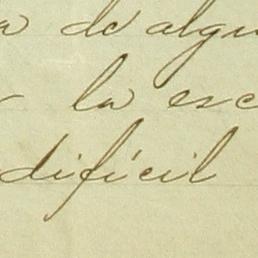 a de algu
la esc
difícil